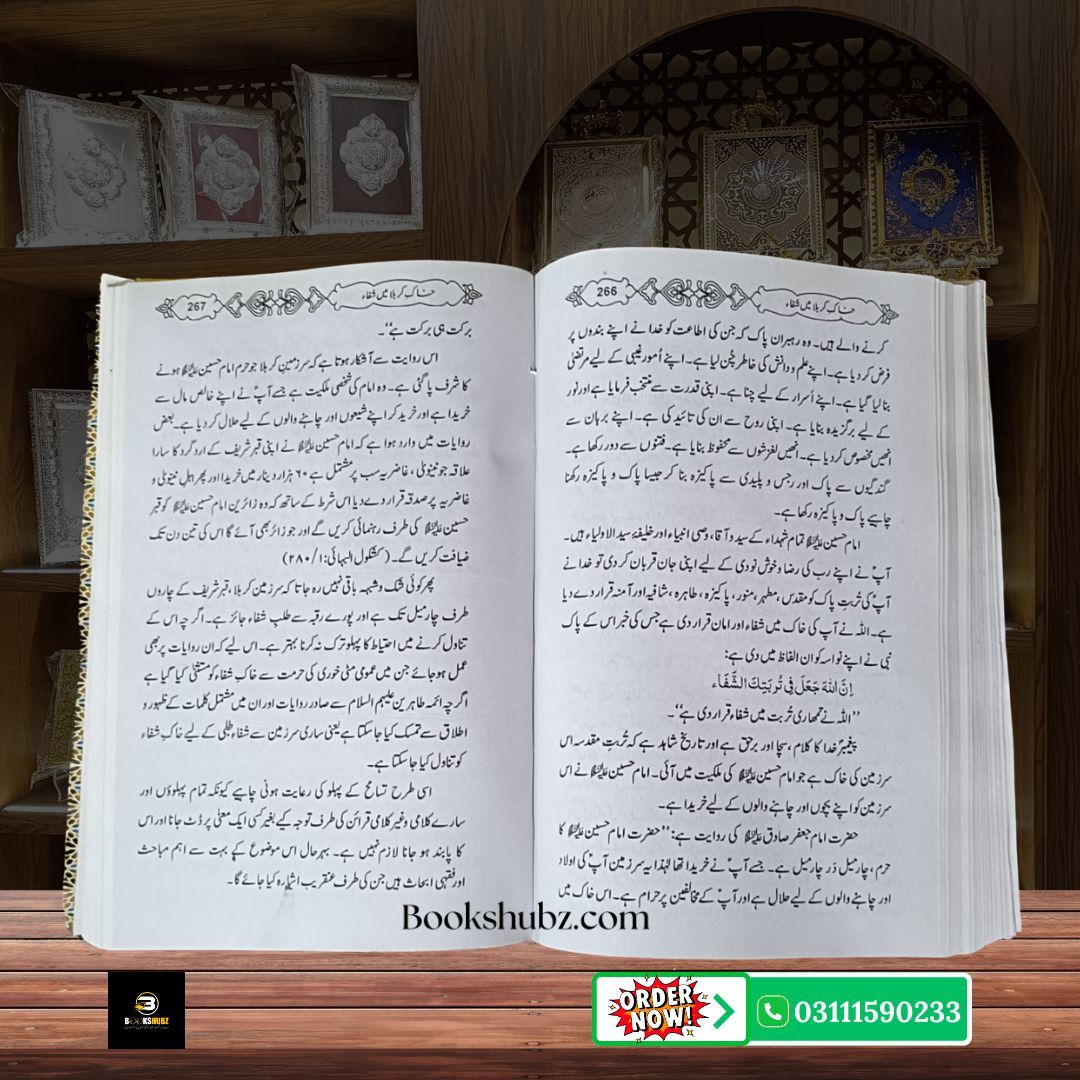 266
خاکِ کربلا میں شفاء
کرنے والے ہیں۔ وہ رہبرانِ پاک کہ جن کی اطاعت کو خدا نے اپنے بندوں پر
فرض کر دیا ہے۔ اپنے علم و دانش کی خاطر چُن لیا ہے۔ اپنے اُمورِ غیبی کے لیے مرتضیٰ
بنا لیا گیا ہے۔ اپنے اَسرار کے لیے چنا ہے۔ اپنی قدرت سے منتخب فرمایا ہے اور نور
کے لیے برگزیدہ بنایا ہے۔ اپنی روح سے ان کی تائید کی ہے۔ اپنے برہان سے
انھیں مخصوص کر دیا ہے۔ انھیں لغزشوں سے محفوظ بنایا ہے۔ فتنوں سے دور رکھا ہے۔
گندگیوں سے پاک اور رجس و پلیدی سے پاکیزہ بنا کر جیسا پاک و پاکیزہ رکھنا
چاہیے پاک و پاکیزہ رکھا ہے۔
امام حسین علیہ السلام تمام شہداء کے سید و آقا، وصی انبیاء اور خلیفۂ سید الاولیاء ہیں۔
آپؑ نے اپنے رب کی رضا و خوش نودی کے لیے اپنی جان قربان کر دی تو خدا نے
آپؑ کی تُربتِ پاک کو مقدس، مطہر، منور، پاکیزہ، طاہرہ، شافیہ اور آمنہ قرار دے دیا
ہے۔ اللہ نے آپ کی خاک میں شفاء اور امان قرار دی ہے جس کی خبر اس کے پاک
نبی نے اپنے نواسہ کو ان الفاظ میں دی ہے:
اِنَّ اللهَ جَعَلَ فِی تُربَتِكَ الشِّفَاء
’’اللہ نے تمھاری تُربت میں شفاء قرار دی ہے‘‘۔
پیغمبرِ خدا کا کلام، سچا اور برحق ہے اور تاریخ شاہد ہے کہ تُربتِ مقدسہ اس
سرزمین کی خاک ہے جو امام حسین علیہ السلام کی ملکیت میں آئی۔ امام حسین علیہ السلام نے اس
سرزمین کو اپنے بچوں اور چاہنے والوں کے لیے خریدا ہے۔
حضرت امام جعفر صادق علیہ السلام کی روایت ہے: ’’حضرت امام حسین علیہ السلام کا
حرم، چارمیل دَر چارمیل ہے۔ جسے آپؑ نے خریدا تھا لہٰذا یہ سرزمین آپؑ کی اولاد
اور چاہنے والوں کے لیے حلال ہے اور آپؑ کے مخالفین پر حرام ہے۔ اس خاک میں
267
خاکِ کربلا میں شفاء
برکت ہی برکت ہے‘‘۔
اس روایت سے آشکار ہوتا ہے کہ سرزمینِ کربلا جو حرم امام حسین علیہ السلام ہونے
کا شرف پا گئی ہے۔ وہ امام کی شخصی ملکیت ہے جسے آپؑ نے اپنے خالص مال سے
خریدا ہے اور خرید کر اپنے شیعوں اور چاہنے والوں کے لیے حلال کر دیا ہے۔ بعض
روایات میں وارد ہوا ہے کہ امام حسین علیہ السلام نے اپنی قبر شریف کے اردگرد کا سارا
علاقہ جو نینویٰ، غاضریہ سب پر مشتمل ہے ۶۰ ہزار دینار میں خریدا اور پھر اہلِ نینویٰ و
غاضریہ پر صدقہ قرار دے دیا اس شرط کے ساتھ کہ وہ زائرین امام حسین علیہ السلام کو قبرِ
حسین علیہ السلام کی طرف رہنمائی کریں گے اور جو زائر بھی آئے گا اس کی تین دن تک
ضیافت کریں گے۔ (کشکول البہائی: ۱/۲۸۰)
پھر کوئی شک و شبہہ باقی نہیں رہ جاتا کہ سرزمین کربلا، قبر شریف کے چاروں
طرف چارمیل تک ہے اور پورے رقبہ سے طلبِ شفاء جائز ہے۔ اگرچہ اس کے
تناول کرنے میں احتیاط کا پہلو ترک نہ کرنا بہتر ہے۔ اس لیے کہ ان روایات پر بھی
عمل ہو جائے جن میں عمومی مٹی خوری کی حرمت سے خاکِ شفاء کو مستثنیٰ کیا گیا ہے
اگرچہ ائمہ طاہرین علیہم السلام سے صادر روایات اور ان میں مشتمل کلمات کے ظہور و
اطلاق سے تمسک کیا جا سکتا ہے یعنی ساری سرزمین سے شفاء طلبی کے لیے خاکِ شفاء
کو تناول کیا جا سکتا ہے۔
اسی طرح تسامح کے پہلو کی رعایت ہونی چاہیے کیونکہ تمام پہلوؤں اور
سارے کلامی و غیر کلامی قرائن کی طرف توجہ کیے بغیر کسی ایک معنیٰ پر ڈٹ جانا اور اس
کا پابند ہو جانا لازم نہیں ہے۔ بہر حال اس موضوع کے بہت سے اہم مباحث
اور فقہی ابحاث ہیں جن کی طرف عنقریب اشارہ کیا جائے گا۔
Bookshubz.com
BOOKSHUBZ
ORDER NOW!
03111590233